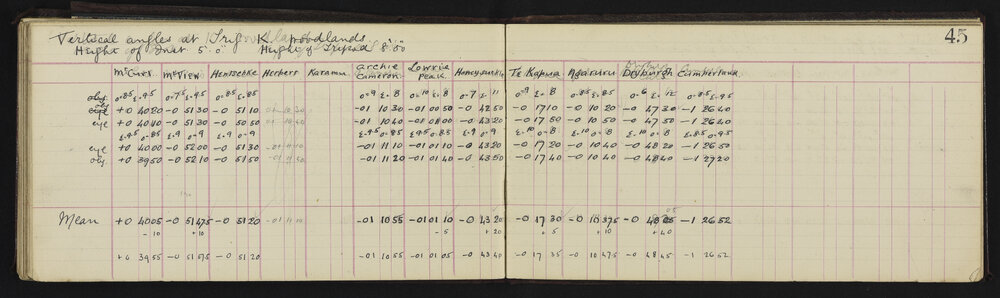 45
Vertical angles at Trig K Woodlands
Height of Inst. 5.0" Height of Tripod 8.50
McTier Hentschke Herbert Karamu archie Cameron Lowrie Peak Honeysuckle Te Kapua Ngaruru Dryburgh Cumberland
obj 0.85 E.95 0.75 E.95 0.85 E.85 0.9 E.8 0.10 E.8 0.7 E.11 0.9 E.8 0.85 E.85 0.6 E.12 0.85 E.95
+0 40 20 -0 51 30 -0 51 10 -01 10 30 -01 10 30 -01 00 50 -0 42 50 -0 17 10 -0 10 20 -0 47 30 -1 26 40
eye +0 40 40 -0 51 30 -0 50 50 -01 10 40 -01 01 00 -0 43 20 -0 17 50 -0 10 50 -0 47 50 -1 26 40
E.95 0.85 E.9 0.9 E.9 0.9 E.95 0.85 E.95 0.85 E.9 0.9 E.10 0.8 E.9 0.8 E.10 0.8 E.85 0.95
eye +0 40 00 -0 52 00 -0 51 30 -01 11 10 -01 01 10 -0 43 20 -0 17 20 -0 10 40 -0 48 20 -1 26 50
obj +0 39 50 -0 52 10 -0 51 50 -01 11 20 -01 01 40 -0 43 50 -0 17 40 -0 10 40 -0 48 40 -1 27 20
Mean +0 40 05 -0 51 475 -0 51 20 -01 10 55 -01 01 10 -0 43 20 -0 17 30 -0 10 375 -0 48 05 -1 26 52
-10 +10 -5 +20 +5 +10 +40
+0 39 55 -0 51 575 -0 51 20 -01 10 55 -01 01 05 -0 43 40 -0 17 35 -0 10 475 -0 48 45 -1 26 52